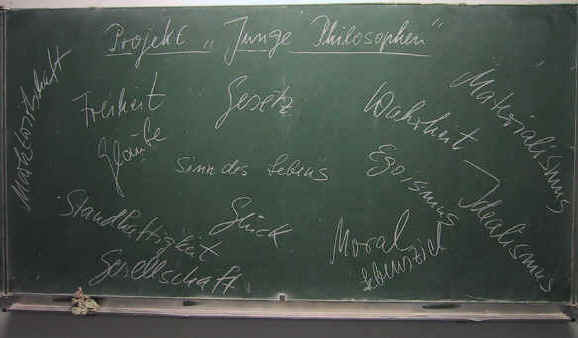 Projekt „Junge Philosophen"
Freiheit
Gesetz
Wahrheit
Materialismus
Glaube
Sinn des Lebens
Egoismus
Idealismus
Standhaftigkeit
Glück
Moral
Lebensziel
Gesellschaft